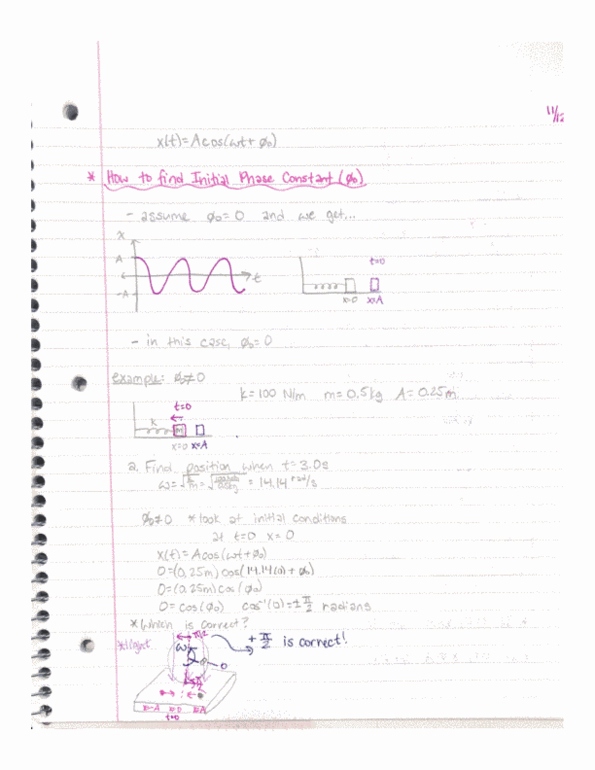 11/12
x(t)=Acos(ωt+ϕ₀)
* How to find Initial Phase Constant (ϕ₀)
- assume ϕ₀=0 and we get...
x
A
-A
t
t=0
x=0 x=A
- in this case, ϕ₀=0
example: ϕ₀≠0
k=100 N/m m=0.5kg A=0.25m
t=0
k
m
x=0 x=A
a. Find position when t=3.0s
ω=√k/m = = 14.14 rad/s
ϕ₀≠0 *look at initial conditions
at t=0 x=0
x(t)=Acos(ωt+ϕ₀)
0=(0.25m)cos(14.14(0)+ϕ₀)
0=(0.25m)cos(ϕ₀)
0=cos(ϕ₀) cos⁻¹(0)=±π/2 radians
*Which is correct?
*light
π/2
+π/2 is correct!
ω
0
x=-A x=0 x=A
t=0